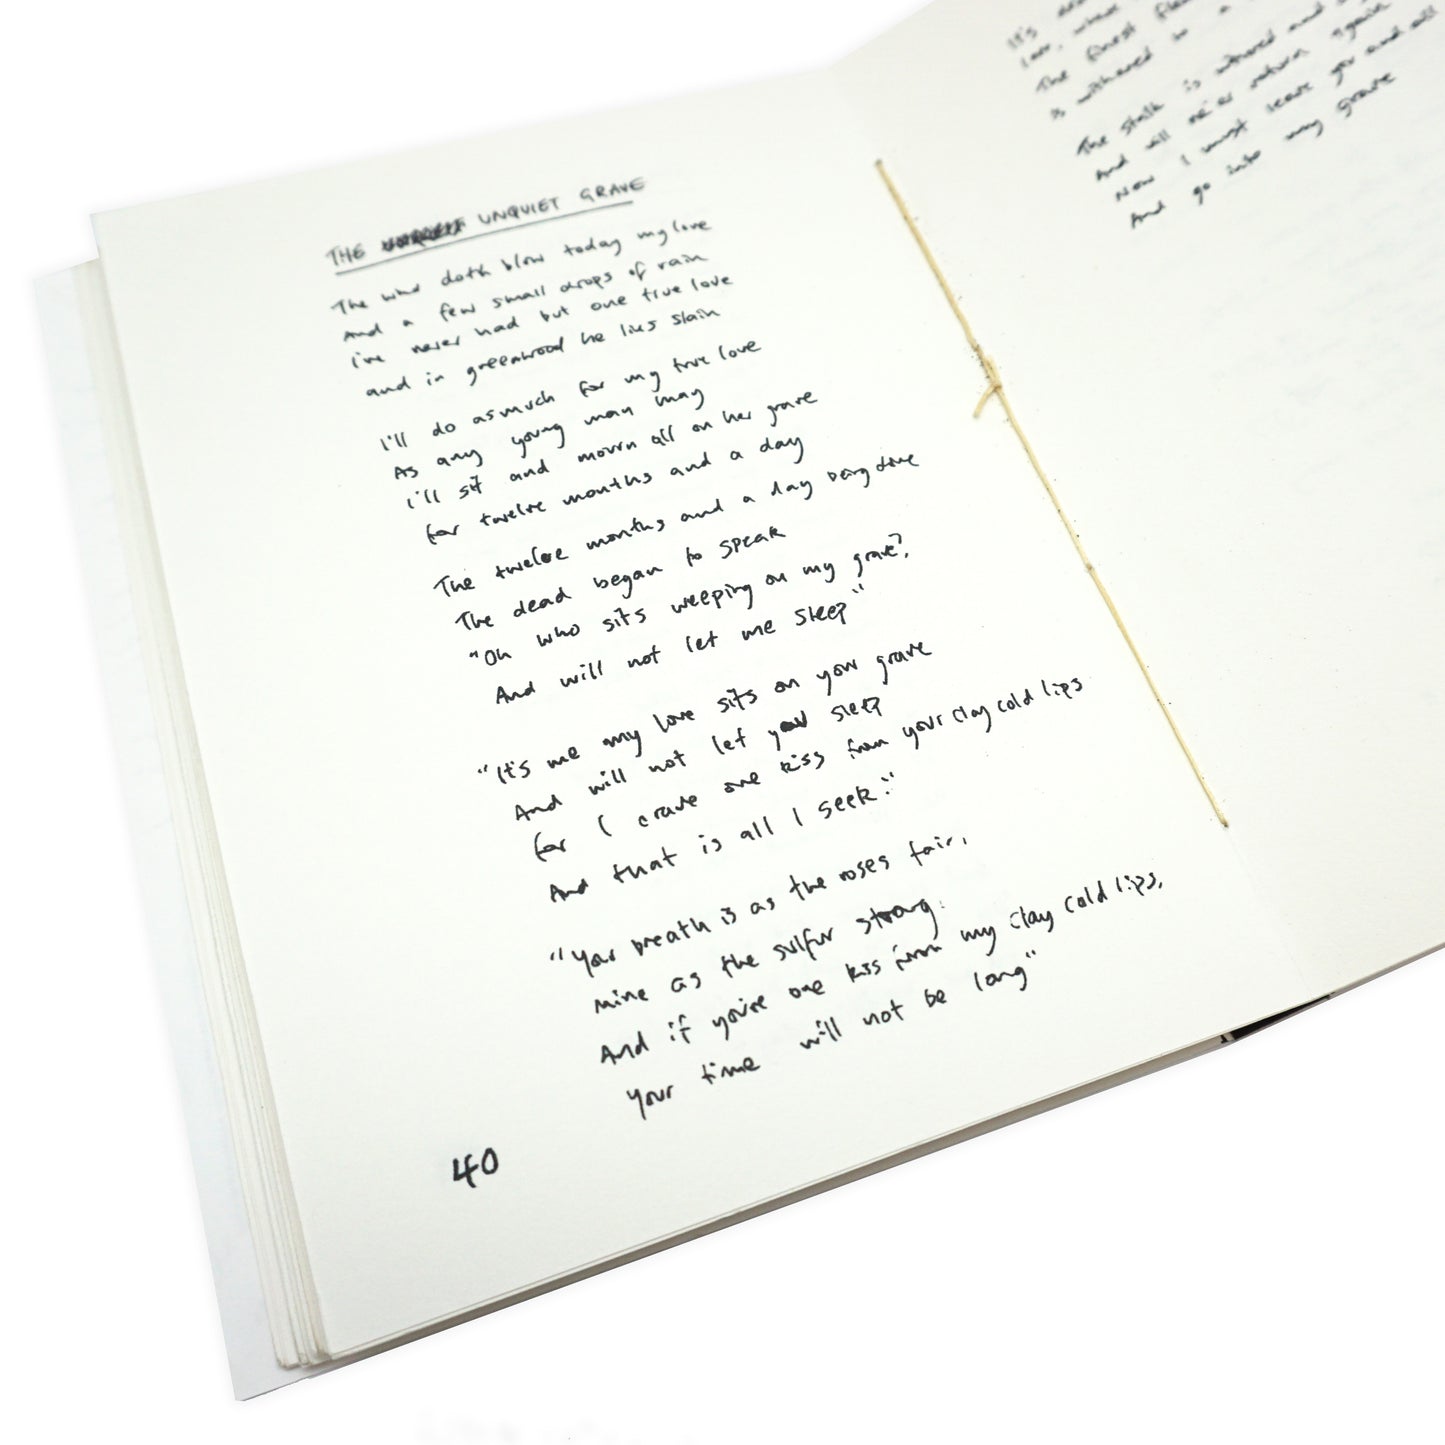 THE UNQUIET GRAVE
The wind doth blow today my love
And a few small drops of rain
I've never had but one true love
and in greenwood he lies slain
I'll do as much for my true love
As any young man may
I'll sit and mourn all on her grave
for twelve months and a day
The twelve months and a day being done
The dead began to speak
"Oh who sits weeping on my grave?,
And will not let me sleep"
"It's me my love sits on your grave
And will not let you sleep
for I crave one kiss from your clay cold lips
And that is all I seek."
"Your breath is as the roses fair,
mine as the sulfur strong.
And if you're one kiss from my clay cold lips,
Your time will not be long"
40
It's
love, where
The finest
is withered to a
The stalk is withered and
And will ne'er return again
Now I must leave you and all
And go into my grave